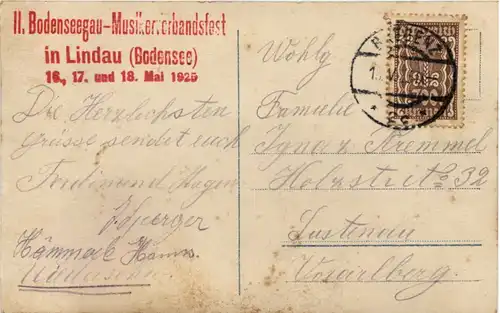 II. Bodenseegau-Musikerverbandsfest
in Lindau (Bodensee)
16., 17. und 18. Mai 1925
Die Herzlichsten
Grüsse sendet euch
Ferdinand Hagen
Hämmerle
BREGENZ
Wohlg
Familie
Ignaz Hremmel
Holzstr No 32
Lustenau
Vorarlberg.